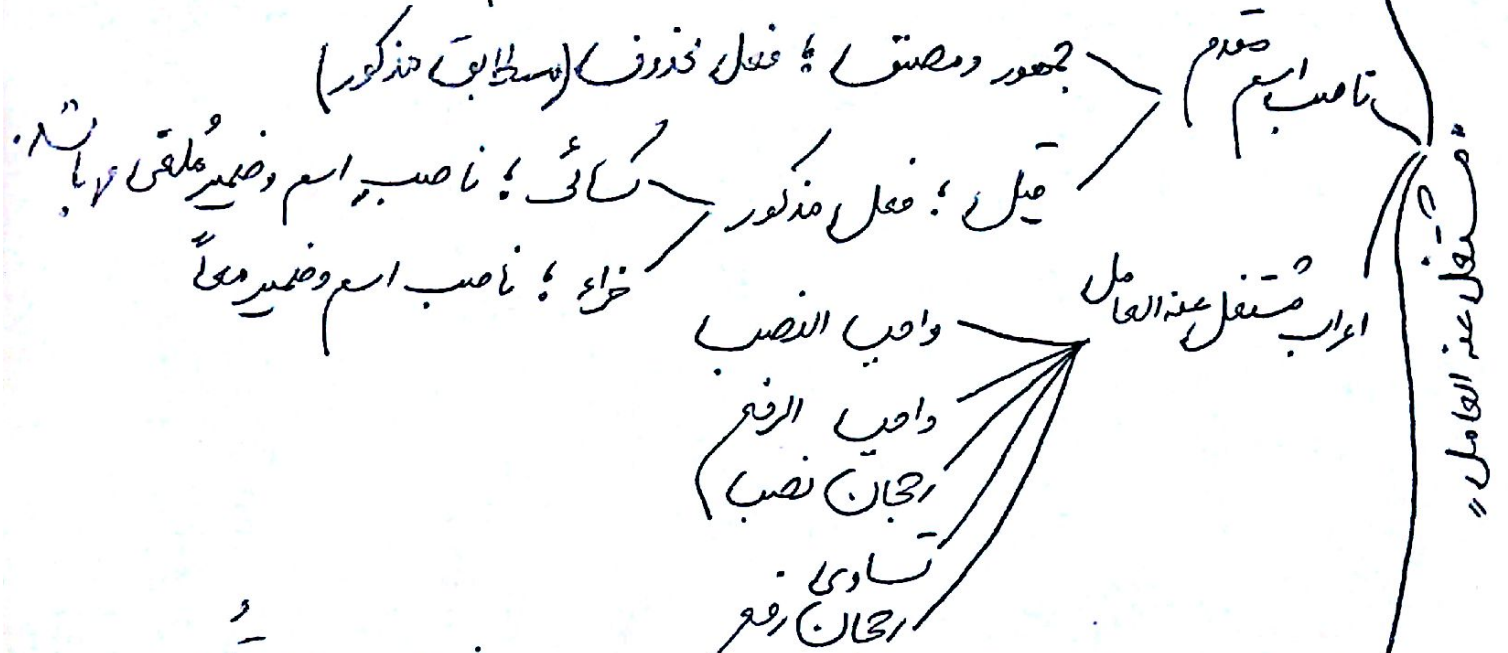 «مشتغل عنه العامل»
ناصب اسم مقدم
جمهور و مصنف ؛ فعل محذوف (مطابق مذکور)
قیل ؛ فعل مذکور
کسائی ؛ ناصب اسم و ضمیر مُلقی باشد.
فراء ؛ ناصب اسم و ضمیر معاً
اعراب مشتغل عنه العامل
واجب النصب
واجب الرفع
رجحان نصب
تساوی
رجحان رفع